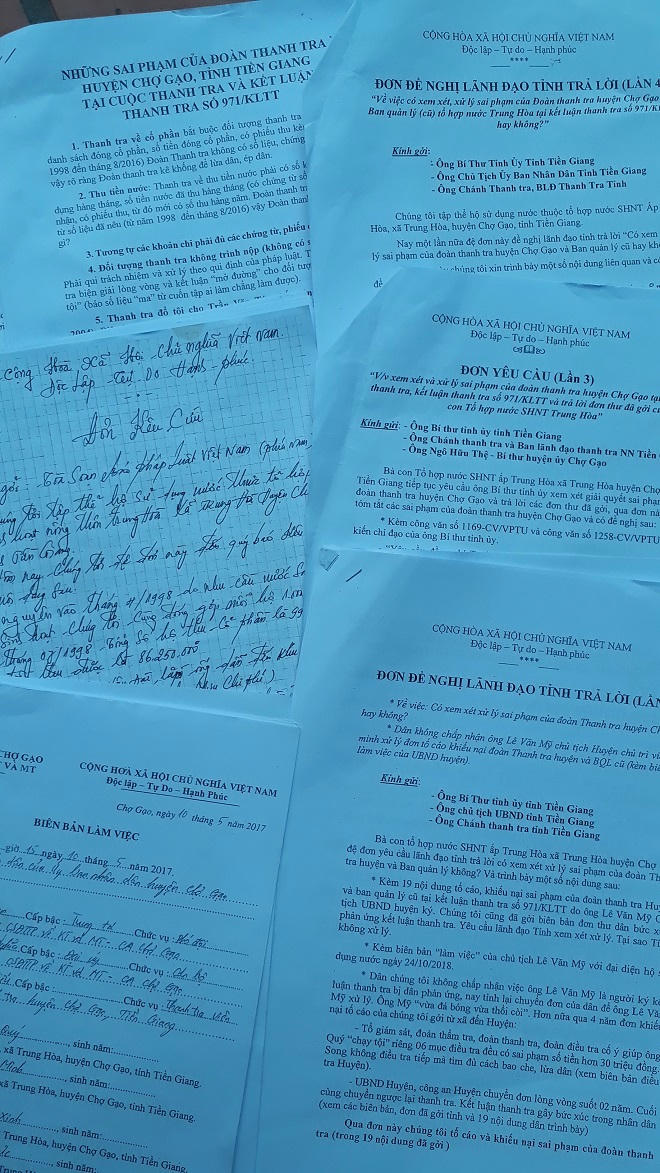 NHỮNG SAI PHẠM CỦA ĐOÀN THANH TRA
HUYỆN CHỢ GẠO, TỈNH TIỀN GIANG
TẠI CUỘC THANH TRA VÀ KẾT LUẬN
THANH TRA SỐ 971/KLTT
1. Thanh tra về cổ phần bắt buộc đối tượng thanh tra
danh sách đóng cổ phần, số tiền đóng cổ phần, có phiếu thu kè
1998 đến tháng 8/2016) Đoàn Thanh tra không có số liệu, chứng
vậy rõ ràng Đoàn thanh tra kê khống để lừa dân, ép dân.
2. Thu tiền nước: Thanh tra về thu tiền nước phải có số k
dụng hàng tháng, số tiền nước đã thu hàng tháng (có chứng từ số
nhận, có phiếu thu, từ đó mới có số thu hàng năm. Đoàn thanh tr
từ số liệu đã nêu (từ năm 1998 đến tháng 8/2016) vậy Đoàn than
gì?
3. Tương tự các khoản chi phải đủ các chứng từ, phiếu
4. Đối tượng thanh tra không trình nộp (không có s
Phải qui trách nhiệm và xử lý theo qui định của pháp luật. T
tra biện giải lòng vòng và kết luận “mở đường” cho đối tượ
tội” (báo số liệu “ma” từ cuốn tập ai làm chẳng làm được).
5. Thanh tra đổ tội cho Trần
CỘNG HÒA XÃ HỘI CHỦ NGHĨA VIỆT NAM
Độc lập – Tự do – Hạnh phúc
****
ĐƠN ĐỀ NGHỊ LÃNH ĐẠO TỈNH TRẢ LỜI (LẦN 4
“Về việc có xem xét, xử lý sai phạm của Đoàn thanh tra huyện Chợ Gạo
Ban quản lý (cũ) tổ hợp nước Trung Hòa tại kết luận thanh tra số 971/K
hay không?”
Kính gởi:
- Ông Bí Thư Tỉnh Ủy Tỉnh Tiền Giang
- Ông Chủ Tịch Ủy Ban Nhân Dân Tỉnh Tiền Giang
- Ông Chánh Thanh tra, BLĐ Thanh Tra Tỉnh
Chúng tôi tập thể hộ sử dụng nước thuộc tổ hợp nước SHNT Ấp
Hòa, xã Trung Hòa, huyện Chợ Gạo, tỉnh Tiền Giang.
Nay một lần nữa đệ đơn này đề nghị lãnh đạo tỉnh trả lời “Có xem
lý sai phạm của đoàn thanh tra huyện Chợ Gạo và Ban quản lý cũ hay kh
chúng tôi xin trình bày một số nội dung liên quan và c
Cộng Hòa Xã Hội Chủ Nghĩa Việt Nam
Độc Lập - Tự Do Hạnh phúc
Đơn Kêu Cứu
Tòa Soạn Pháp Luật Việt Nam
tôi tập thể hộ sử dụng nước
nông thôn Trung Hòa Xã Trung Hòa Huyện
nay chúng tôi đệ đơn này đến quý báo
vào tháng 4/1998 do nhu cầu nước
chúng tôi cùng đóng góp mỗi hộ
tháng 07/1998
86.250.000đ
CỘNG HÒA XÃ HỘI CHỦ NGHĨA VIỆT NAM
Độc lập – Tự do – Hạnh phúc
ĐƠN YÊU CẦU (Lần 3)
“V/v xem xét và xử lý sai phạm của đoàn thanh tra huyện Chợ Gạo tạ
thanh tra, kết luận thanh tra số 971/KLTT và trả lời đơn thư đã gởi c
con Tổ hợp nước SHNT Trung Hòa”
Kính gửi: - Ông Bí thư tỉnh ủy tỉnh Tiền Giang
- Ông Chánh thanh tra và Ban lãnh đạo thanh tra NN Tiền
- Ông Ngô Hữu Thệ - Bí thư huyện ủy Chợ Gạo
Bà con Tổ hợp nước SHNT ấp Trung Hòa xã Trung Hòa huyện Chợ
Tiền Giang tiếp tục yêu cầu ông Bí thư tỉnh ủy xem xét giải quyết sai phạ
đoàn thanh tra huyện Chợ Gạo và trả lời các đơn thư đã gởi, qua đơn nà
tóm tắt các sai phạm của đoàn thanh tra huyện Chợ Gạo và có đề nghị sau:
* Kèm công văn số 1169-CV/VPTU và công văn số 1258-CV/VPTU
kiến chỉ đạo của ông Bí thư tỉnh ủy.
CHỢ GẠO
VÀ MT
CỘNG HOÀ XÃ HỘI CHỦ NGHĨA VIỆT NAM
Độc lập – Tự Do – Hạnh Phúc
Chợ Gạo, ngày 10 tháng 5 năm 2017
BIÊN BẢN LÀM VIỆC
giờ 15 ngày 10 tháng 5 năm 2017.
dân của Ủy ban nhân dân huyện Chợ Gạo
Cấp bậc: Trung tá Chức vụ: Đội
CSĐTTP về KT và MT - CA Chợ Gạo
Cấp bậc: Đại úy Chức vụ: Cán bộ
CSĐTTP về KT và MT - CA Chợ Gạo
Cấp bậc: Chức vụ: Thanh tra viên
Tra huyện Chợ Gạo, Tiền Giang
Quý, sinh năm:
, xã Trung Hòa, huyện Chợ Gạo, tỉnh Tiền Giang.
Minh, sinh năm:
xã Trung Hòa, huyện Chợ Gạo, tỉnh Tiền Giang.
, sinh năm:
Trung Hòa, huyện Chợ Gạo, tỉnh Tiền Giang.
, sinh năm:
CỘNG HÒA XÃ HỘI CHỦ NGHĨA VIỆT NAM
Độc lập – Tự do – Hạnh phúc
****
ĐƠN ĐỀ NGHỊ LÃNH ĐẠO TỈNH TRẢ LỜI (LẦN
* Về việc: Có xem xét xử lý sai phạm của đoàn Thanh tra huyện C
hay không?
* Dân không chấp nhận ông Lê Văn Mỹ chủ tịch Huyện chủ trì v
minh xử lý đơn tố cáo khiếu nại đoàn Thanh tra huyện và BQL cũ (kèm biê
làm việc của UBND huyện).
Kính gởi:
- Ông Bí Thư tỉnh ủy tỉnh Tiền Giang
- Ông chủ tịch UBND tỉnh Tiền Giang
- Ông Chánh thanh tra tỉnh Tiền Giang
Bà con tổ hợp nước SHNT ấp Trung Hòa xã Trung Hòa huyện Chợ
đệ đơn yêu cầu lãnh đạo tỉnh trả lời có xem xét xử lý sai phạm của đoàn Th
tra huyện và Ban quản lý không? Và trình bày một số nội dung sau:
* Kèm 19 nội dung tố cáo, khiếu nại sai phạm của đoàn thanh tra Hu
và ban quản lý cũ tại kết luận thanh tra số 971/KLTT do ông Lê Văn Mỹ C
tịch UBND huyện ký. Chúng tôi cũng đã gởi biên bản đơn thư dân bức x
phản ứng kết luận thanh tra. Yêu cầu lãnh đạo Tỉnh xem xét xử lý. Tại sao Ti
không xử lý.
* Kèm biên bản “làm việc” của chủ tịch Lê Văn Mỹ với đại diện hộ
dụng nước ngày 24/10/2018.
* Dân chúng tôi không chấp nhận việc ông Lê Văn Mỹ là người ký k
luận thanh tra bị dân phản ứng, nay tỉnh lại chuyển đơn của dân để ông Lê Vă
Mỹ xử lý. Ông Mỹ “vừa đá bóng vừa thổi còi”. Hơn nữa qua 4 năm đơn khiế
nại tố cáo của chúng tôi gởi từ xã đến Huyện:
- Tổ giám sát, đoàn thẩm tra, đoàn thanh tra, đoàn điều tra cố ý giúp ông
Quý “chạy tội” riêng 06 mục điều tra đều có sai phạm số tiền hơn 30 triệu đồng.
Song không điều tra tiếp mà tìm đủ cách bao che, lừa dân (xem biên bản điều
tra Huyện).
- UBND Huyện, công an Huyện chuyển đơn lòng vòng suốt 02 năm. Cuối
cùng chuyển ngược lại thanh tra. Kết luận thanh tra gây bức xúc trong nhân dân
(xem các biên bản, đơn đã gởi tỉnh và 19 nội dung dân trình bày)
Qua đơn này chúng tôi tố cáo và khiếu nại sai phạm của đoàn thanh
tra (trong 19 nội dung đã gởi )